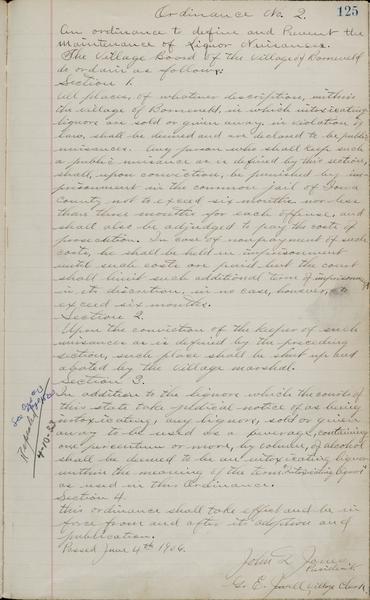 125
Ordinance No. 2.
An ordinance to define and Prevent the
maintenance of Liquor Nuisances.
The Village Board of the Village of Barneveld
do ordain as follows:
Section 1.
All places, of whatever description, within
the village of Barneveld, in which intoxicating
liquors are sold or given away in violation of
law, shall be deemed and are declared to be public
nuisances. Any person who shall keep such
a public nuisance as is defined by this section,
shall, upon conviction, be punished by im-
prisonment in the common jail of Iowa
County not to exceed six months nor less
than three months for each offense, and
shall also be adjudged to pay the costs of
prosecution. In case of nonpayment of such
costs, he shall be held in imprisonment
until such costs are paid but the court
shall limit such additional term of imprisonment
in its discretion, in no case, however, to
exceed six months.
Section 2.
Upon the conviction of the keeper of such
nuisances as is defined by the preceding
section, such place shall be shut up and
abated by the Village marshal.
Section 3.
In addition to the liquors which the courts of
this state take judicial notice of as being
intoxicating, any liquor, sold or given
away to be used as a beverage, containing
one percentum or more, by volume, of alcohol
shall be deemed to be an intoxicating liquor
within the meaning of the term "intoxicating liquors"
as used in this Ordinance.
Section 4.
This ordinance shall take effect and be in
force from and after its adoption and
publication.
Passed June 4th 1906.
John L Jones
President
G. E. Jewell Village Clerk
Repealed
4-10-33